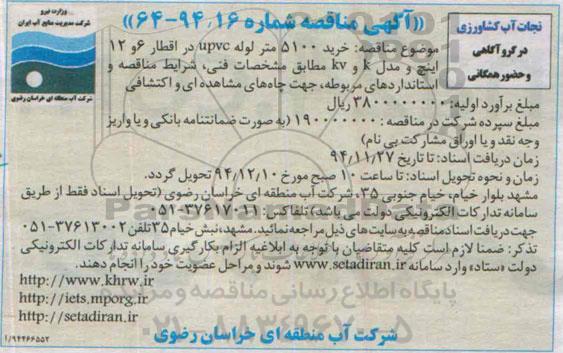 وزارت نیرو
شرکت مدیریت منابع آب ایران
شرکت آب منطقه ای خراسان رضوی
نجات آب کشاورزی
در گرو آگاهی
و حضور همگانی
«آگهی مناقصه شماره ۱۶-۹۴-۶۴»
موضوع مناقصه: خرید ۵۱۰۰ متر لوله upvc در اقطار ۶و ۱۲
اینچ و مدل k و kv مطابق مشخصات فنی، شرایط مناقصه و
استانداردهای مربوطه، جهت چاه‌های مشاهده ای و اکتشافی
مبلغ برآورد اولیه: ۳۸۰۰۰۰۰۰۰۰ ریال
مبلغ سپرده شرکت در مناقصه: ۱۹۰۰۰۰۰۰۰ (به صورت ضمانتنامه بانکی و یا واریز
وجه نقد و یا اوراق مشارکت بی نام)
زمان دریافت اسناد: تا تاریخ ۹۴/۱۱/۲۷
زمان و نحوه تحویل اسناد: تا ساعت ۱۰ صبح مورخ ۹۴/۱۲/۱۰ تحویل گردد.
مشهد بلوار خیام، خیام جنوبی ۳۵، شرکت آب منطقه ای خراسان رضوی (تحویل اسناد فقط از طریق
سامانه تدارکات الکترونیکی دولت می باشد) تلفاکس: ۳۷۶۱۷۰۱۱-۰۵۱
جهت دریافت اسناد مناقصه به سایت های ذیل مراجعه نمائید. مشهد، نبش خیام ۳۵ تلفن ۳۷۶۱۳۰۰۲-۰۵۱
تذکر: ضمنا لازم است کلیه متقاضیان با توجه به ابلاغیه الزام بکارگیری سامانه تدارکات الکترونیکی
دولت «ستاد» وارد سامانه www.setadiran.ir شوند و مراحل عضویت خود را انجام دهند.
http://www.khrw.ir
http://iets.mporg.ir
http://setadiran.ir
پایگاه اطلاع رسانی مناقصه و مزایده
۰۲۱-۸۸۳۴۹۶۷۰-۵
شرکت آب منطقه ای خراسان رضوی
۱/۹۴۴۶۶۵۵۲